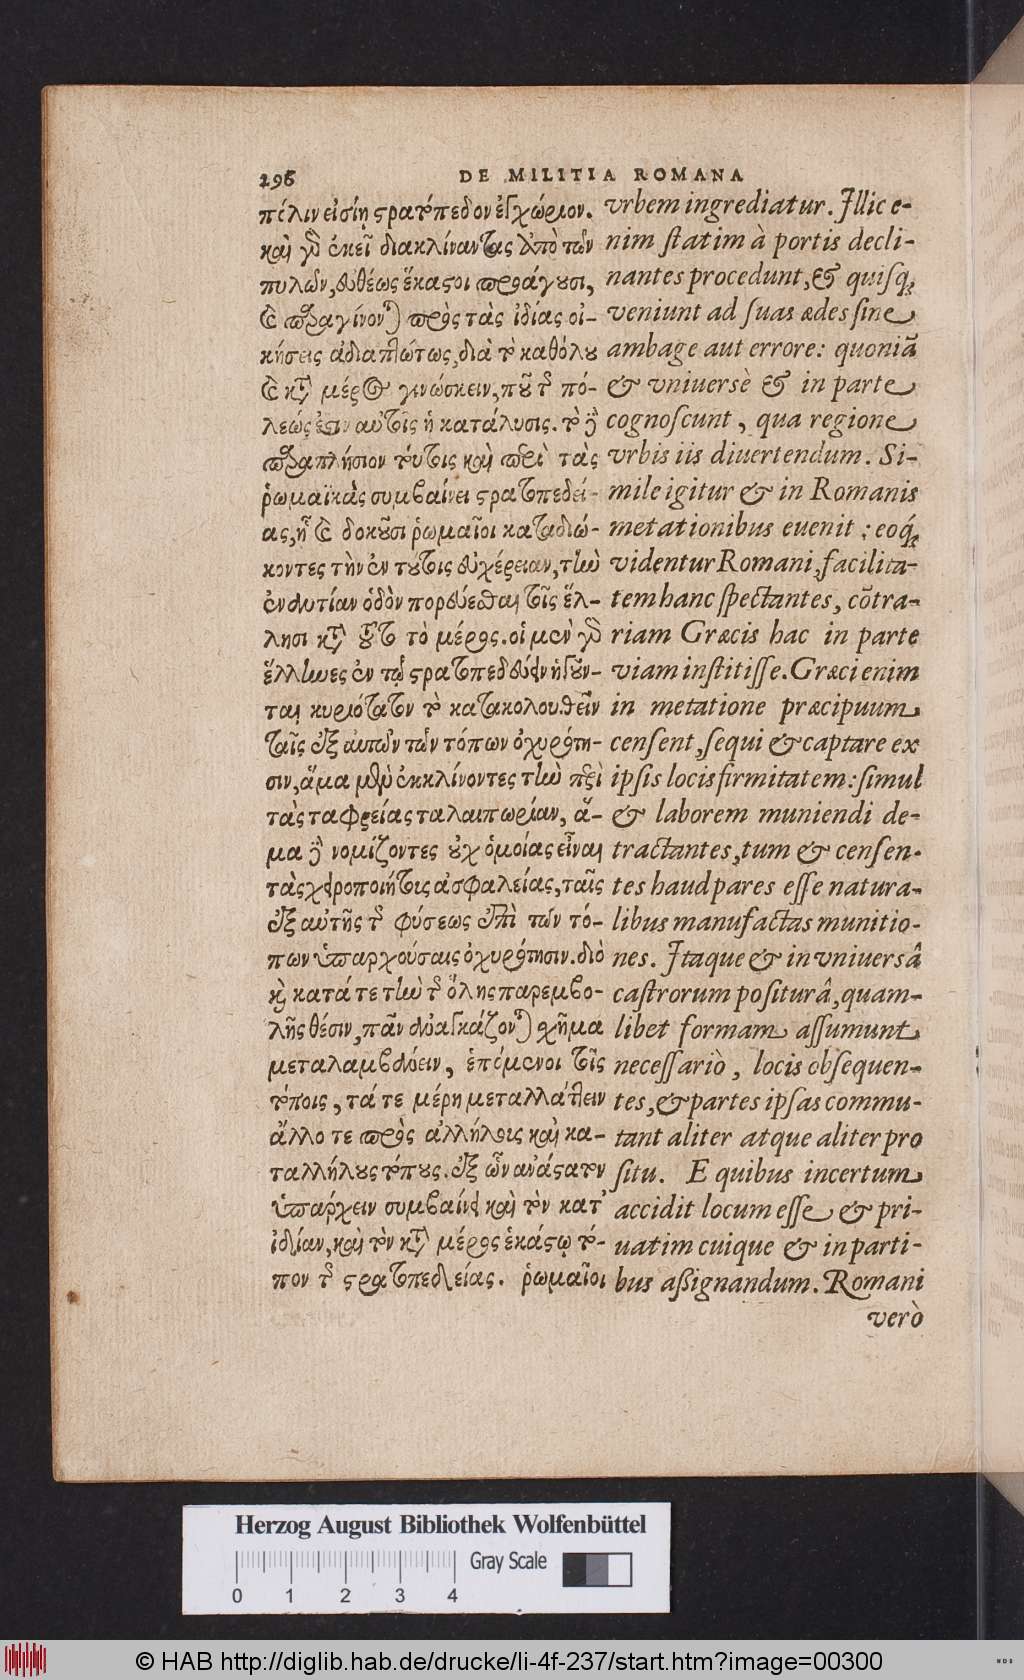 296 DE MILITIA ROMANA
πόλιν εἰσίῃ στρατόπεδον ἐγχώριον.
καὶ γὰρ ἐκεῖ διακλίναντας ἀπὸ τῶν
πυλῶν, εὐθέως ἕκαστοι προάγουσι,
καὶ παραγίνονται πρὸς τὰς ἰδίας οἰ-
κήσεις ἀδιαπτώτως, διὰ τὸ καθόλου
καὶ κατὰ μέρος γινώσκειν, ποῦ τῆς πό-
λεώς ἐστιν αὐτοῖς ἡ κατάλυσις. τὸ δὲ
παραπλήσιον τούτοις καὶ περὶ τὰς
ῥωμαϊκὰς συμβαίνει στρατοπεδεί-
ας, ᾗ καὶ δοκοῦσι ῥωμαῖοι καταδιώ-
κοντες τὴν ἐν τούτοις εὐχέρειαν, τὴν
ἐναντίαν ὁδὸν πορεύεσθαι τοῖς ἕλ-
λησι κατὰ τοῦτο τὸ μέρος. οἱ μὲν γὰρ
ἕλληνες ἐν τῷ στρατοπεδεύειν ἡγοῦν-
ται κυριώτατον τὸ κατακολουθεῖν
ταῖς ἐξ αὐτῶν τῶν τόπων ὀχυρότη-
σιν, ἅμα μὲν ἐκκλίνοντες τὴν περὶ
τὰς ταφρείας ταλαιπωρίαν, ἅ-
μα δὲ νομίζοντες οὐχ ὁμοίας εἶναι
τὰς χειροποιήτοις ἀσφαλείας, ταῖς
ἐξ αὐτῆς τῆς φύσεως ἐπὶ τῶν τό-
πων ὑπαρχούσαις ὀχυρότησιν. διὸ
καὶ κατά τε τὴν τῆς ὅλης παρεμβο-
λῆς θέσιν, πᾶν ἀναγκάζονται σχῆμα
μεταλαμβάνειν, ἑπόμενοι τοῖς
τόποις, τά τε μέρη μεταλλάττειν
ἄλλοτε πρὸς ἀλλήλοις καὶ κα-
ταλλήλους τόπους. ἐξ ὧν ἀνάστατον
ὑπάρχειν συμβαίνει καὶ τὸν κατ'
ἰδίαν, καὶ τὸν κατὰ μέρος ἑκάστῳ τό-
πον τῆς στρατοπεδείας. ῥωμαῖοι
vrbem ingrediatur. Illic e-
nim statim à portis decli-
nantes procedunt, & quisq;
veniunt ad suas ædes sine
ambage aut errore: quoniā
& vniuersè & in parte
cognoscunt, qua regione
vrbis iis diuertendum. Si-
mile igitur & in Romanis
metationibus euenit: eoq́;
videntur Romani, facilita-
tem hanc spectantes, cōtra-
riam Græcis hac in parte
viam institisse. Græci enim
in metatione præcipuum
censent, sequi & captare ex
ipsis locis firmitatem: simul
& laborem muniendi de-
tractantes, tum & censen-
tes haud pares esse natura-
libus manufactas munitio-
nes. Itaque & in vniuersâ
castrorum positurâ, quam-
libet formam assumunt
necessariò, locis obsequen-
tes, & partes ipsas commu-
tant aliter atque aliter pro
situ. E quibus incertum
accidit locum esse & pri-
uatim cuique & in parti-
bus assignandum. Romani
verò
Herzog August Bibliothek Wolfenbüttel
Gray Scale
0 1 2 3 4
© HAB http://diglib.hab.de/drucke/li-4f-237/start.htm?image=00300